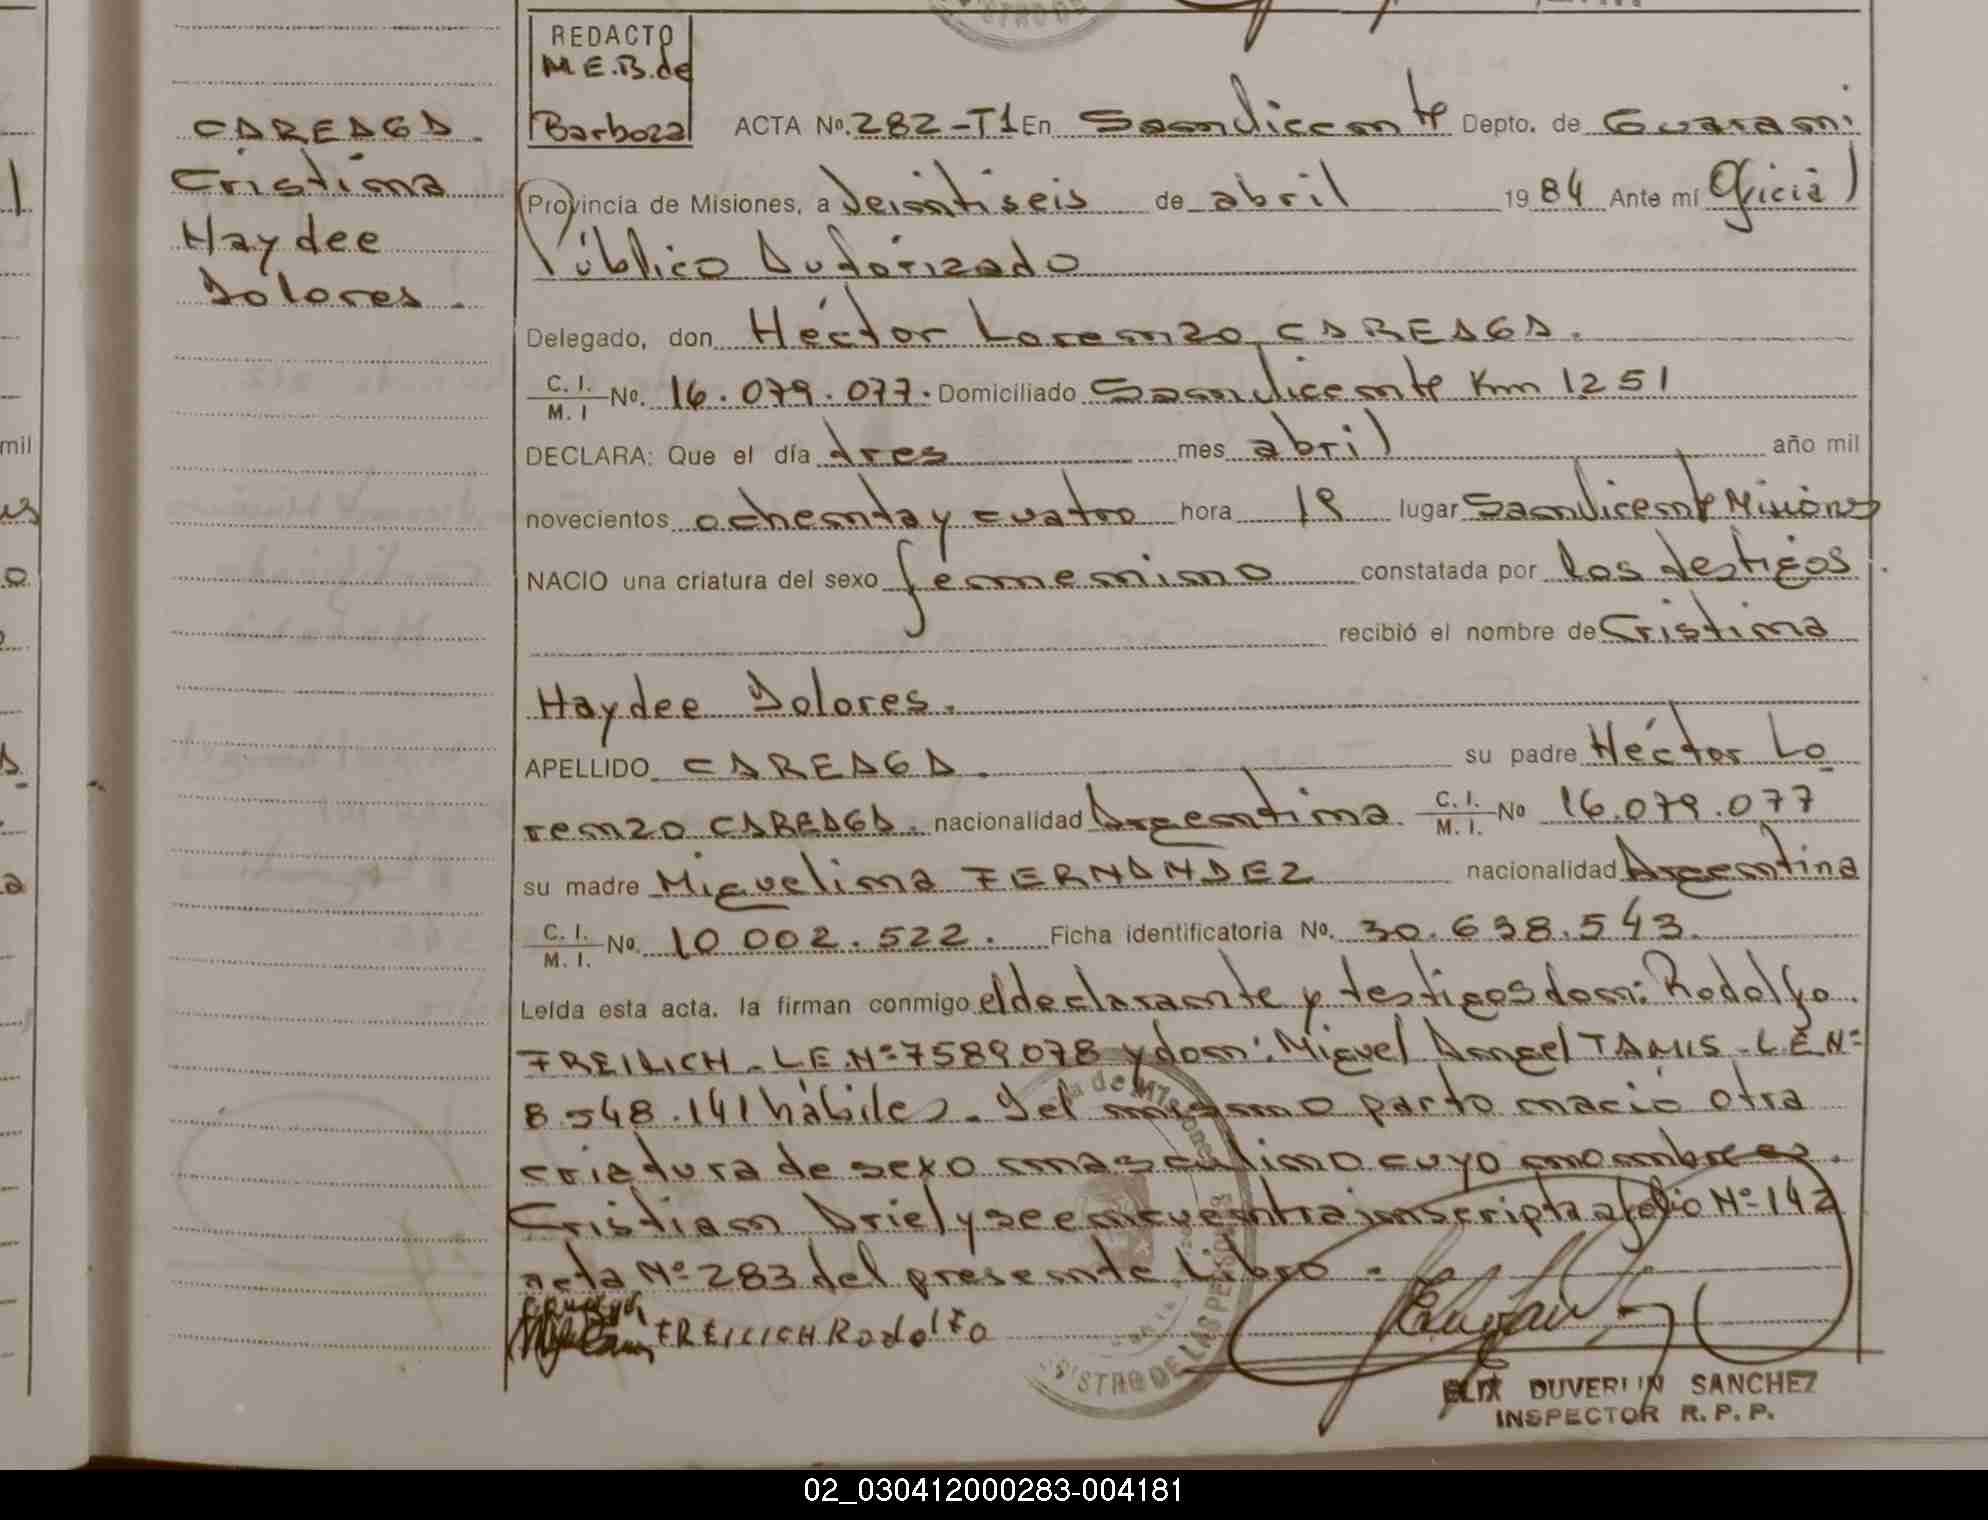 REDACTO
M E.B.de
Barboza
CAREAGA.
Cristina
Haydee
Dolores.
ACTA No. 282-T1 En San Vicente Depto. de Guarani
Provincia de Misiones, a Veintiseis de abril 1984 Ante mí Oficial
Público Autorizado
Delegado, don Héctor Lorenzo CAREAGA.
C. I.
M. I No. 16.079.077. Domiciliado San Vicente Km 1251
DECLARA: Que el día tres mes abril año mil
novecientos ochenta y cuatro hora 19 lugar San Vicente Misiones
NACIO una criatura del sexo femenino constatada por los testigos.
recibió el nombre de Cristina
Haydee Dolores.
APELLIDO CAREAGA. su padre Héctor Lo
renzo CAREAGA. nacionalidad Argentina. C. I. M. I. No 16.079.077
su madre Miguelina FERNANDEZ nacionalidad Argentina
C. I.
M. I. No. 10 002.522. Ficha identificatoria No. 30.638.543.
Leída esta acta, la firman conmigo el declarante y testigos don: Rodolfo.
FREILICH. L.E.Nº 7589078 y don: Miguel Angel TAMIS. L E N=
8.548.141 hábiles. Del mismo parto nació otra
criatura de sexo masculino cuyo nombre es.
Cristian Ariel y se encuentra inscripta a folio Nº 142
acta Nº 283 del presente Libro.
FREILICH Rodolfo
REGISTRO DE LAS PERSONAS
SANCHEZ
INSPECTOR R. P. P.
02_030412000283-004181